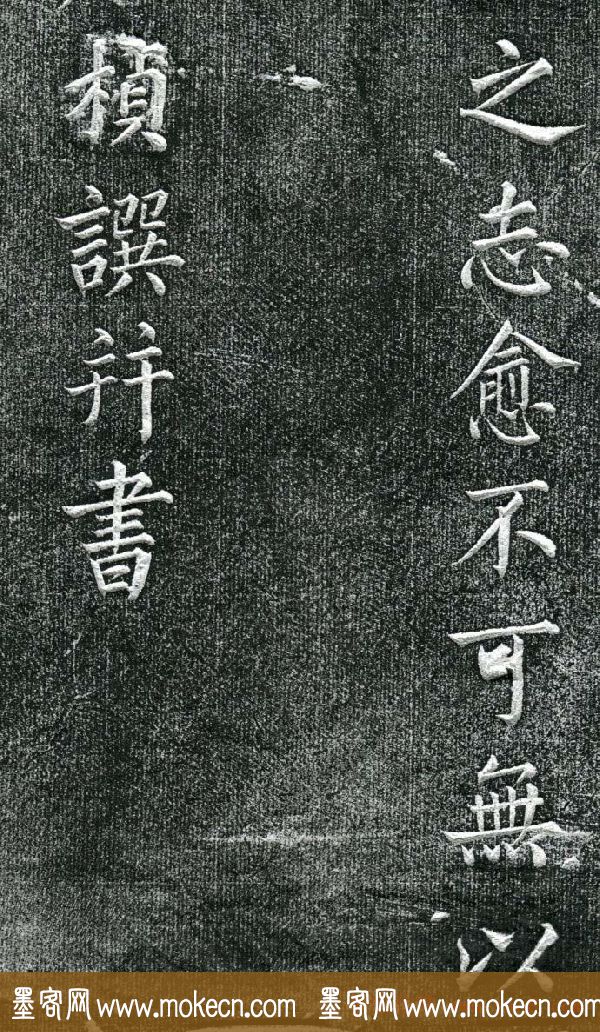 之志愈不可無以
撰幷書
墨客网 www.mokecn.com 墨客网 www.mokecn.com